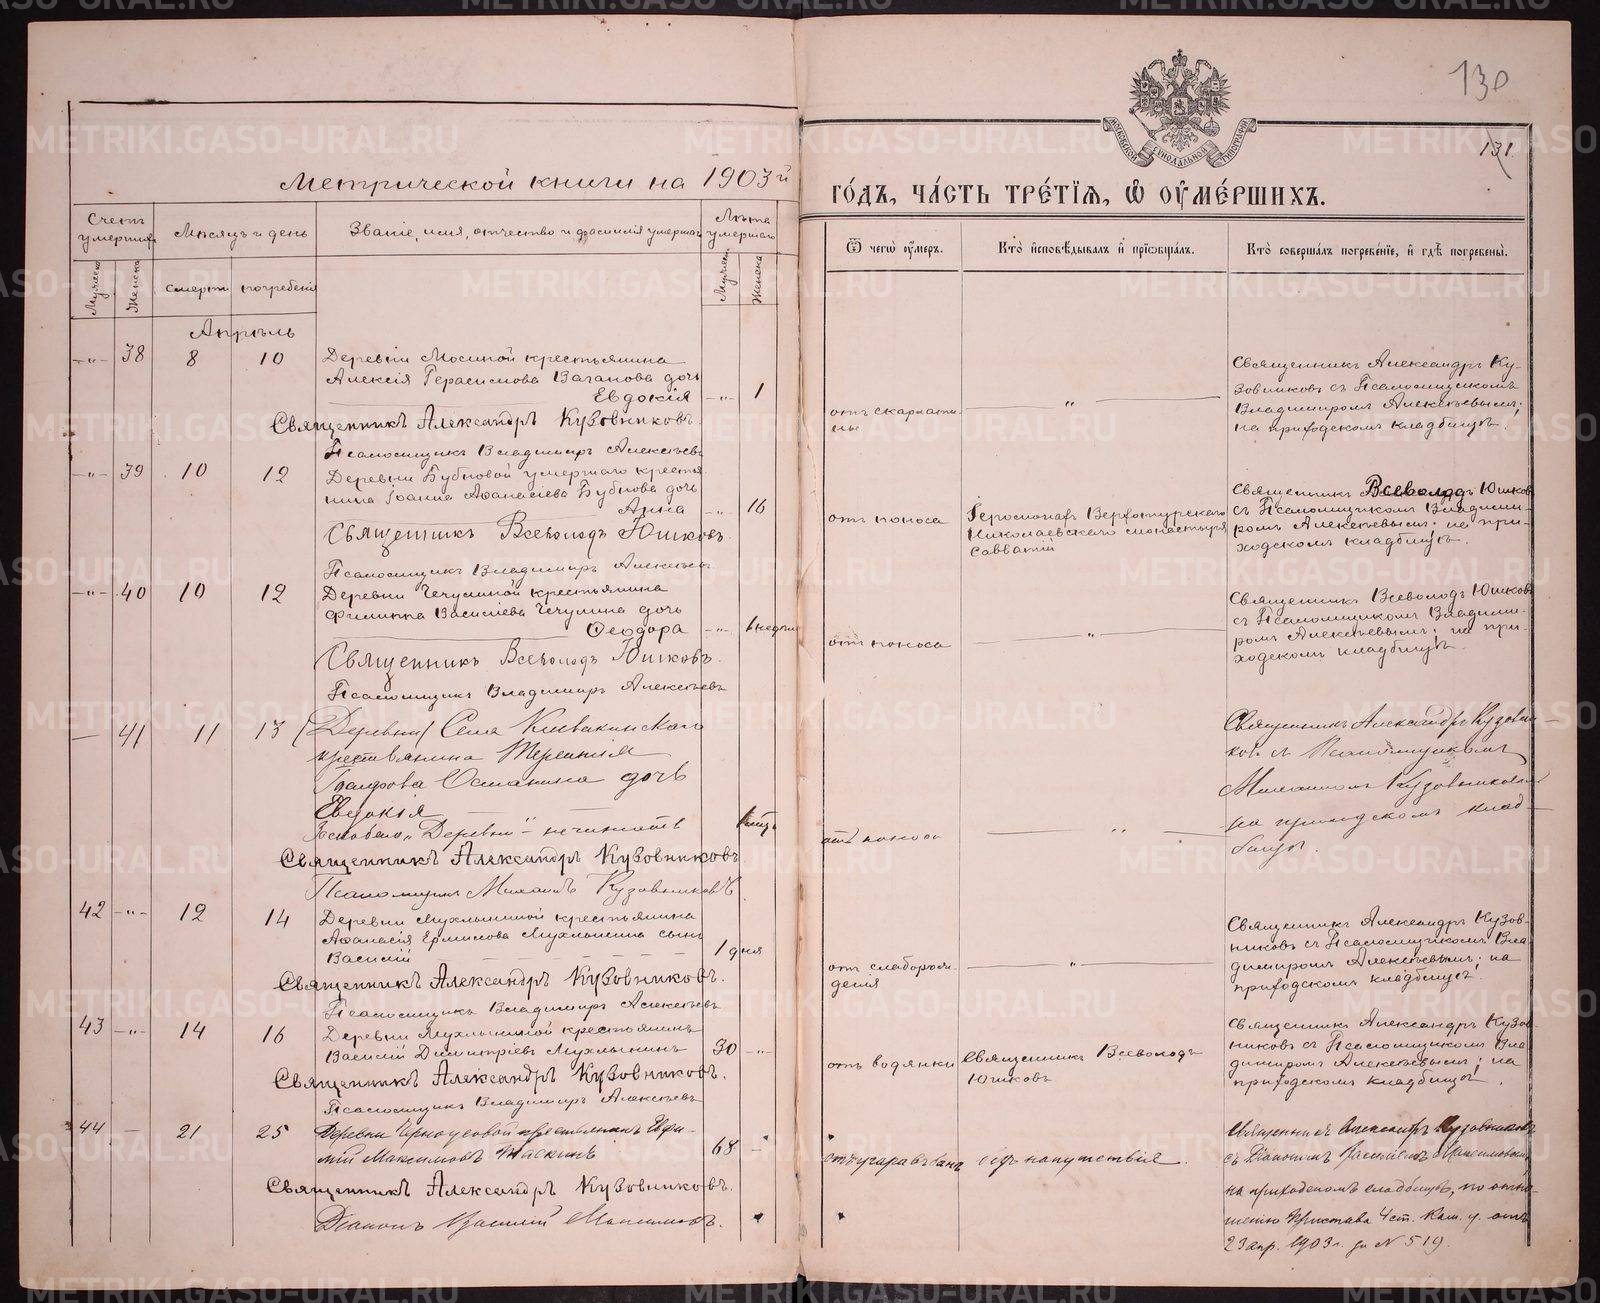 130
131
МОСКОВСКОЙ СѴНОДАЛЬНОЙ ТИПОГРАФІИ
Метрической книги на 1903й
го́дъ, ча́сть тре́тїѧ, ѡ҆ ᲂу҆ме́ршихъ.
Счетъ умершихъ
Мѣсяцъ и день
Званіе, имя, отчество и фамилія умершаго
Лѣта умершаго
Ѿ чегѡ̀ ᲂу҆́меръ.
Кто̀ и҆сповѣ́дывалъ и҆ прїѡбща́лъ.
Кто̀ соверша́лъ погребе́нїе, и҆ гдѣ̀ погребены̀.
Мужеска
Женска
смерти
погребенія
Мужеск
Женска
Апрѣль
-"- 38 8 10 Деревни Мосиной крестьянина
Алексія Герасимова Ваганова дочь
Евдокія -"- 1
Священникъ Александръ Кузовниковъ.
Псаломщикъ Владимиръ Алексѣевъ
отъ скарлати-
ны
"
Священникъ Александръ Ку-
зовниковъ съ Псаломщикомъ
Владимиромъ Алексѣевымъ;
на приходскомъ кладбищѣ.
-"- 39 10 12 Деревни Бубновой умершаго крестья
нина Іоанна Аѳанасіева Бубнова дочь
Анна -"- 16
Священникъ Всеволодъ Юшковъ.
Псаломщикъ Владимиръ Алексѣевъ
отъ поноса
Іеромонахъ Верхотурскаго
Николаевскаго монастыря
Савватій
Священникъ Всеволодъ Юшковъ
съ Псаломщикомъ Владими-
ромъ Алексѣевымъ; на при-
ходскомъ кладбищѣ.
-"- 40 10 12 Деревни Чечулиной крестьянина
Филиппа Василіева Чечулина дочь
Ѳеодора -"- 1 недѣли
Священникъ Всеволодъ Юшковъ.
Псаломщикъ Владимиръ Алексѣевъ
отъ поноса
"
Священникъ Всеволодъ Юшковъ
съ Псаломщикомъ Владими-
ромъ Алексѣевымъ; на при-
ходскомъ кладбищѣ.
— 41 11 13 (Деревни) Села Клевакинскаго
крестьянина Терентія
Останина дочь
Евдокія
"Деревни" — не читать
Священникъ Александръ Кузовниковъ.
Псаломщикъ Михаилъ Кузовниковъ
отъ поноса
"
Священникъ Александръ Кузовни-
ковъ съ Псаломщикомъ
Михаиломъ Кузовниковымъ
на приходскомъ клад-
бищѣ.
42 -"- 12 14 Деревни Мухлыниной крестьянина
Аѳанасія Ермилова Мухлынина сынъ
Василій 1 дня
Священникъ Александръ Кузовниковъ.
Псаломщикъ Владимиръ Алексѣевъ
отъ слаборож-
денія
"
Священникъ Александръ Кузов-
никовъ съ Псаломщикомъ Вла-
димиромъ Алексѣевымъ; на
приходскомъ кладбищѣ.
43 -"- 14 16 Деревни Мухлыниной крестьянинъ
Василій Димитріевъ Мухлынинъ 30 -"-
Священникъ Александръ Кузовниковъ.
Псаломщикъ Владимиръ Алексѣевъ
отъ водянки
Священникъ Всеволодъ
Юшковъ
Священникъ Александръ Кузов-
никовъ съ Псаломщикомъ Вла-
димиромъ Алексѣевымъ; на
приходскомъ кладбищѣ.
44 — 21 25 Деревни Черноусовой крестьянинъ Ефи-
мій Максимовъ Таскинъ 68 -
Священникъ Александръ Кузовниковъ.
Діаконъ Василій Максимовъ.
отъ угара въ банѣ
безъ напутствія.
Священникъ Александръ Кузовниковъ
съ Діакономъ Василіемъ Максимовымъ,
на приходскомъ кладбищѣ, по отно-
шенію Пристава 4 ст. Кам. у. отъ
23 апр. 1903 г. за № 519.
METRIKI.GASO-URAL.RU